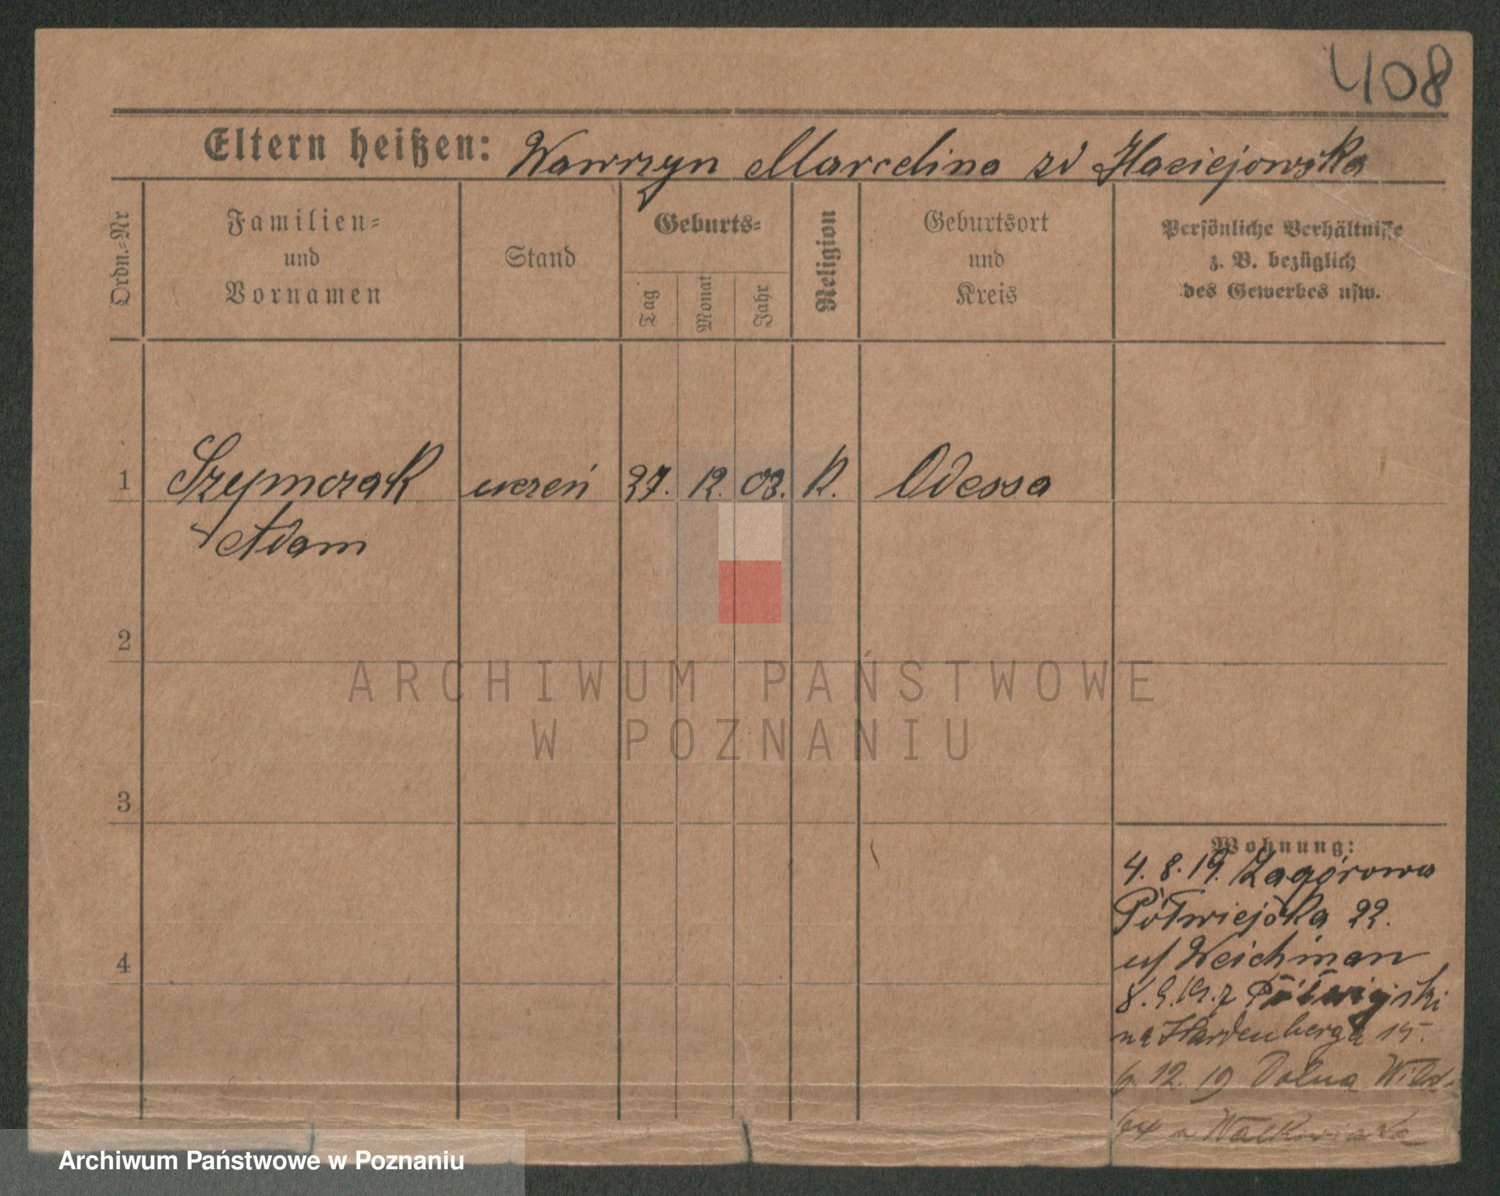 408
Eltern heißen: Wawrzyn Marcelina zd Maciejowska
Ordn.-Nr
Familien-
und
Vornamen
Stand
Geburts-
Tag
Monat
Jahr
Religion
Geburtsort
und
Kreis
Persönliche Verhältnisse
z. B. bezüglich
des Gewerbes usw.
1 Szymczak uczeń 27. 12. 03. K. Odessa
Adam
2
ARCHIWUM PAŃSTWOWE
W POZNANIU
3
Wohnung:
4. 8. 19. Zagórowa
Półwiejska 22.
u/ Weichman
4
8. 9. 19. z Półwiejski
na Hardenberga 15.
6. 12. 19 Dolna Wilda
Archiwum Państwowe w Poznaniu